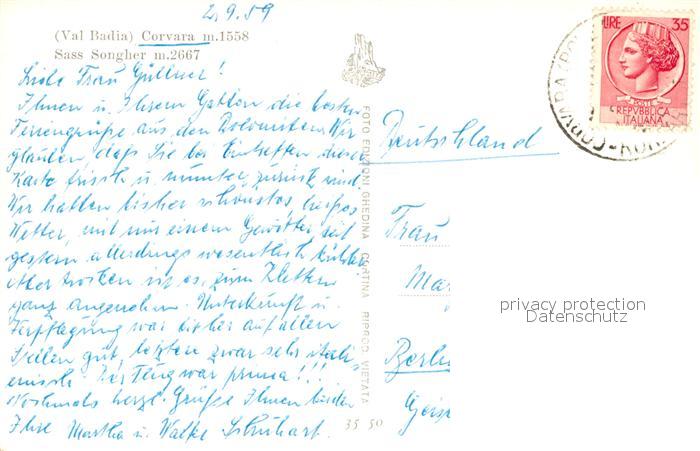 2.9.59
(Val Badia) Corvara m.1558
Sass Songher m.2667
Liebe Frau Güllner!
Ihnen u. Ihrem Gatten die besten
Feriengrüße aus den Dolomiten. Wir
glauben, daß Sie bei Eintreffen dieser
Karte frisch u. munter zurück sind.
Wir hatten bisher schönstes, heißes
Wetter, mit nur einem Gewitter, seit
gestern allerdings wesentlich kühler.
Aber trocken ist es, zum Klettern
ganz angenehm. Unterkunft u.
Verpflegung war bisher auf allen
Teilen gut, letztere zwar sehr itali-
enisch. Der Flug war prima!!!
Nochmals herzl. Grüße Ihnen beiden
Ihre Martha u. Walter
FOTO EDIZIONI GHEDINA CORTINA RIPROD. VIETATA
35 50
LIRE 35
REPVBBLICA
ITALIANA
CORVARA
Deutschland
Frau
Mar
Berlin
privacy protection
Datenschutz